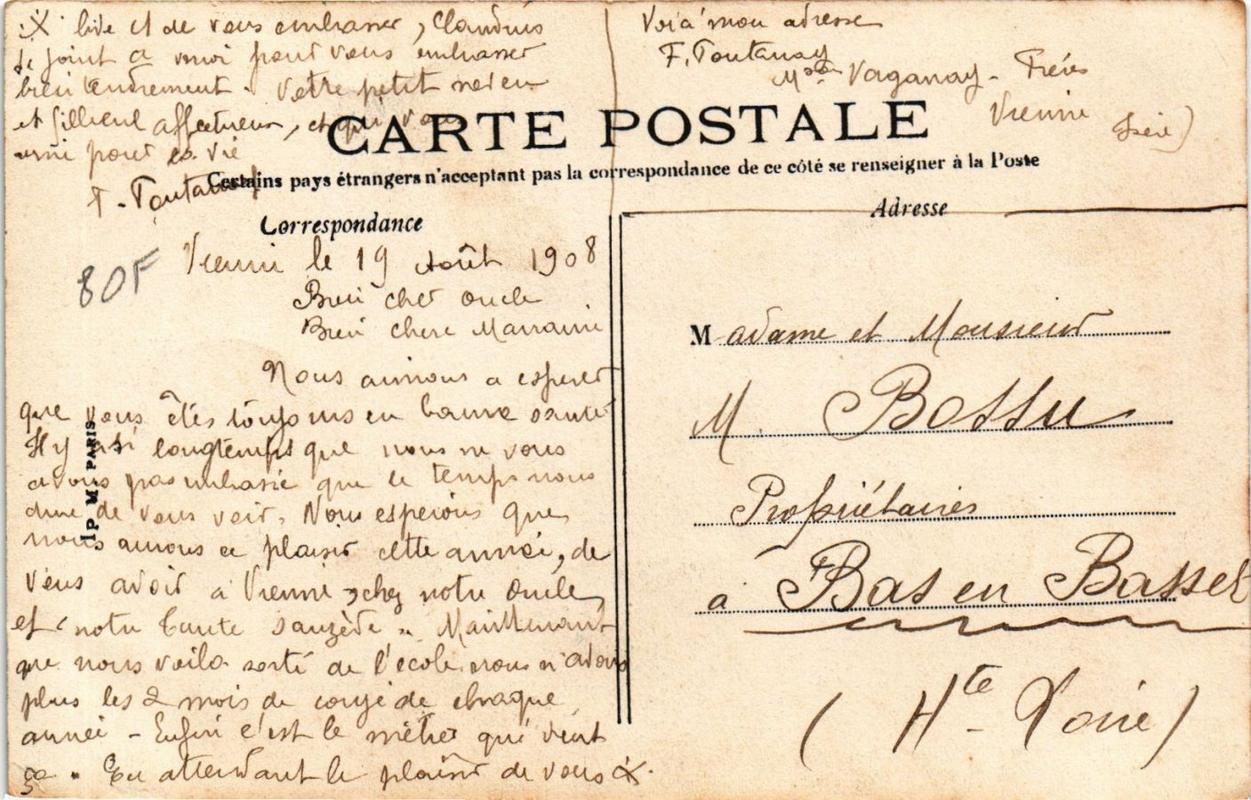 CARTE POSTALE
Certains pays étrangers n'acceptant pas la correspondance de ce côté se renseigner à la Poste
Correspondance
Adresse
80F
I P M PARIS
Vienne le 19 Août 1908
Bien cher Oncle
Bien chere Marraine
Nous aimons a esperer
que vous êtes toujours en bonne santé
Il y a si longtemps que nous ne vous
avons pas embrassé que le temps nous
dure de vous voir. Nous esperons que
nous aurons ce plaisir cette année, de
vous avoir à Vienne, chez notre Oncle
et notre tante Sauzède. Maintenant
que nous voila sorti de l'école nous n'avons
plus les 2 mois de congé de chaque
année - Enfin c'est le métier qui veut
ça. En attendant le plaisir de vous X.
X lire et de vous embrasser, Claudius
se joint a moi pour vous embrasser
bien tendrement. Votre petit neveu
et filleul affectueux, et qui vous
aime pour la vie
F. Fontanay
Voià mon adresse
F. Fontanay
Mson Vaganay - Frères
Vienne
Isère)
Madame et Monsieur
M Bossu
Propriétaires
à Bas en Basset
(Hte Loire)